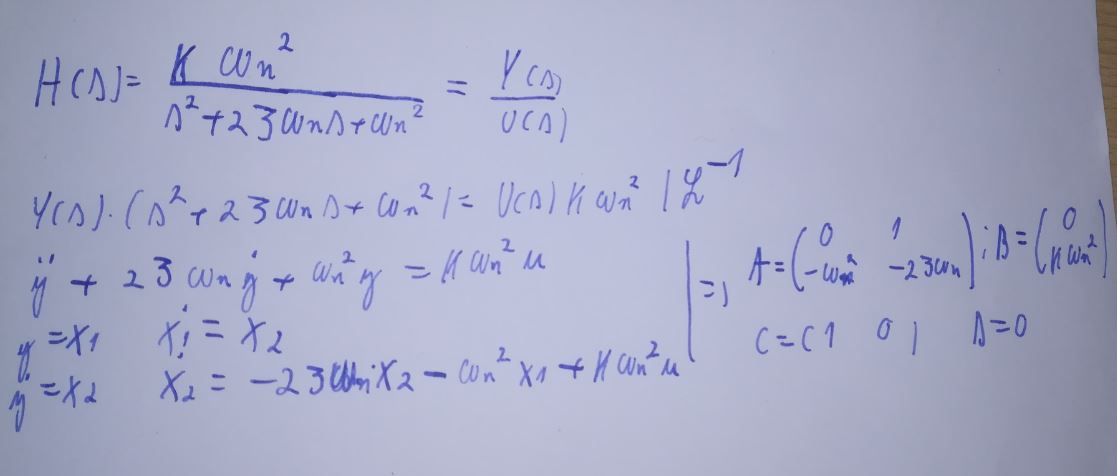 H(s)= K ωn² / s²+2ζωns+ωn² = Y(s) / U(s)
Y(s)·(s²+2ζωns+ωn²)= U(s)Kωn² |ℒ⁻¹
ÿ + 2ζωnẏ + ωn²y = Kωn²u
y=x1 ẋ1=x2
ẏ=x2 ẋ2= -2ζωnx2-ωn²x1+Kωn²u
=> A=(0 1 -ωn² -2ζωn); B=(0 Kωn²)
C=(1 0) D=0